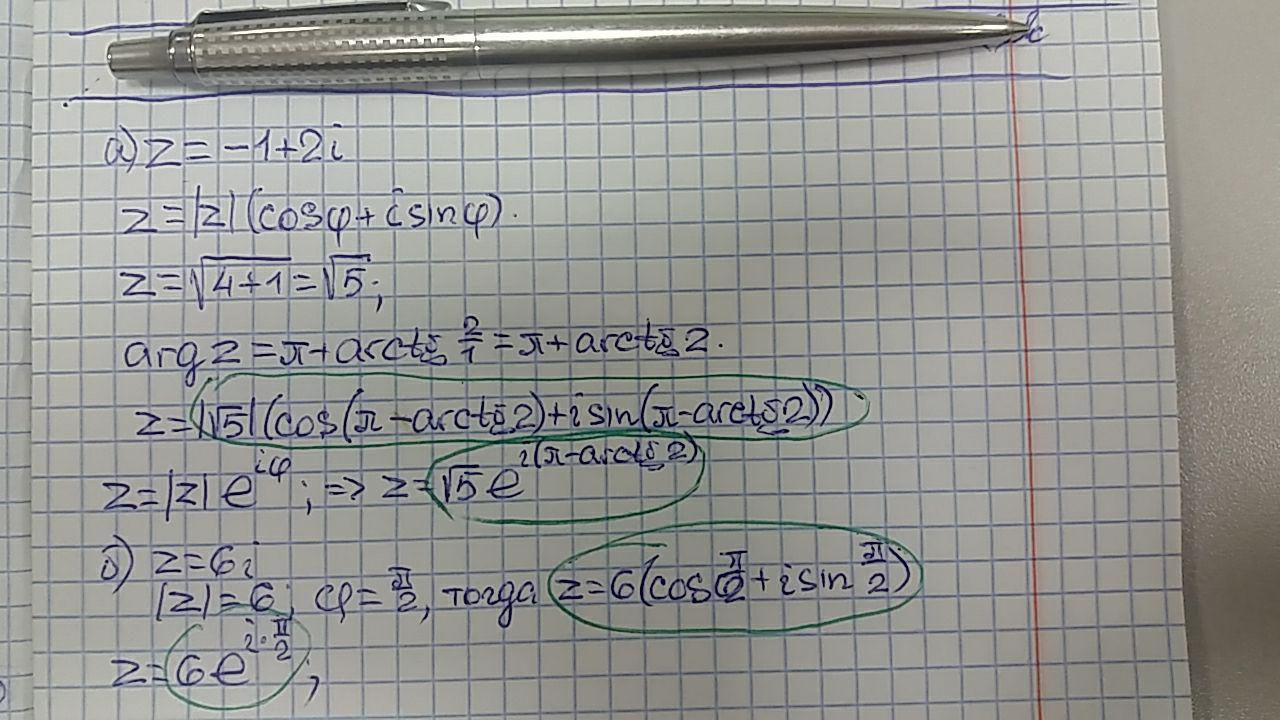 а) z = -1+2i
z = |z| (cosφ + i sinφ).
z = √4+1 = √5;
arg z = π + arctg 2/1 = π + arctg 2.
z = |√5| (cos(π - arctg 2) + i sin(π - arctg 2))
z = |z| e^{iφ}; => z = √5 e^{i(π - arctg 2)}
б) z = 6i
|z| = 6; φ = π/2, тогда z = 6(cos π/2 + i sin π/2)
z = 6 e^{i·π/2};